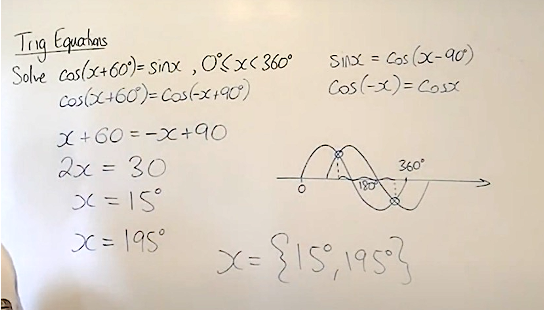 Trig Equations
Solve cos(x+60°)=sinx , 0°≤x<360°
cos(x+60°)=cos(-x+90°)
x+60=-x+90
2x = 30
x = 15°
x = 195°
sinx = cos(x-90°)
cos(-x)=cosx
0
180°
360°
x={15°,195°}